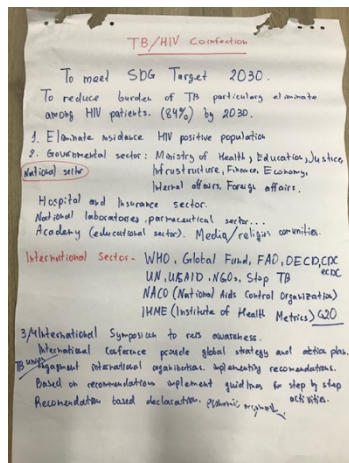 TB/HIV Coinfection
To meet SDG Target 2030.
To reduce burden of TB particulary eliminate
among HIV patients. (84%) by 2030.
1. Eliminate insidance HIV positive population
2. Governmental sector: Ministry of Health, Education, Justice,
National sector
Infrustructure, Finance, Economy,
Internal affairs, Foreign affairs.
Hospital and Insurance sector.
National laboratories, parmaceutical sector...
Academy (educational sector). Media/religius comunities.
International Sector - WHO, Global Fund, FAO, OECD, CDC
ecDC
UN, USAID, NGOs, Stop TB
NACO (National Aids Control Organization)
IHME (Institute of Health Metrics) G20
3/4 International Symposium to reis awareness.
International Conference provide global strategy and action plan.
TB union
Engagment international organization. implementing recomendations.
Based on recommendations implement guidlines for step by step
activities.
Recomendation based declaration.